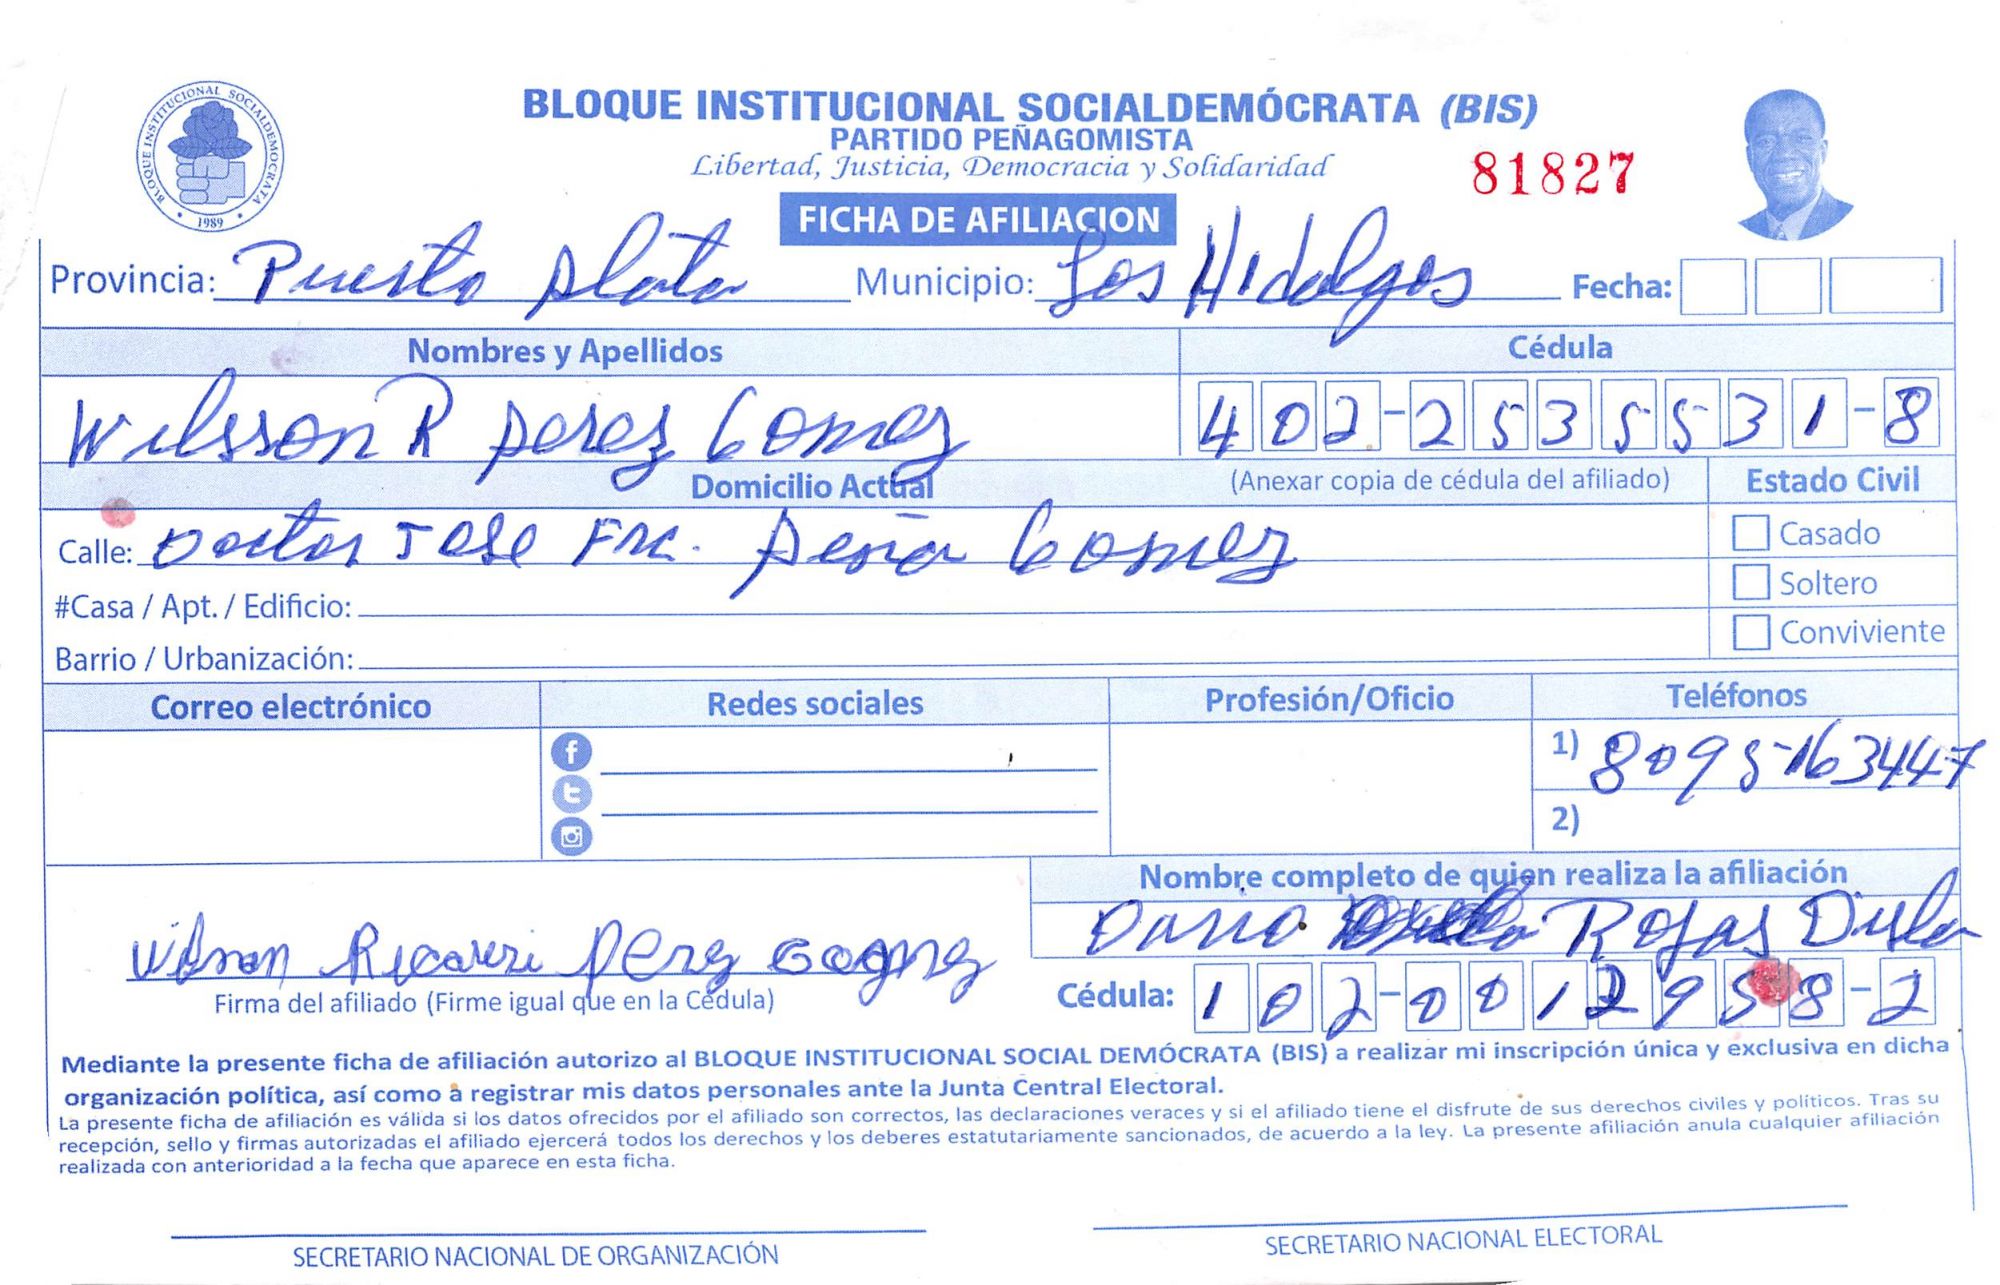 BLOQUE INSTITUCIONAL SOCIALDEMÓCRATA (BIS)
PARTIDO PEÑAGOMISTA
Libertad, Justicia, Democracia y Solidaridad
81827
FICHA DE AFILIACION
BLOQUE INSTITUCIONAL SOCIALDEMOCRATA
1989
Provincia: Puerto plata Municipio: Los Hidalgos Fecha:
Nombres y Apellidos Cédula
Wilsson R perez Gomez 402-2535531-8
Domicilio Actual (Anexar copia de cédula del afiliado) Estado Civil
Calle: Doctor Jose Frc. peña Gomez Casado
#Casa / Apt. / Edificio: Soltero
Barrio / Urbanización: Conviviente
Correo electrónico Redes sociales Profesión/Oficio Teléfonos
1) 8095163447
2)
Nombre completo de quien realiza la afiliación
Dario Rojas
Perez
Firma del afiliado (Firme igual que en la Cédula) Cédula: 102-0012958-2
Mediante la presente ficha de afiliación autorizo al BLOQUE INSTITUCIONAL SOCIAL DEMÓCRATA (BIS) a realizar mi inscripción única y exclusiva en dicha
organización política, así como a registrar mis datos personales ante la Junta Central Electoral.
La presente ficha de afiliación es válida si los datos ofrecidos por el afiliado son correctos, las declaraciones veraces y si el afiliado tiene el disfrute de sus derechos civiles y políticos. Tras su
recepción, sello y firmas autorizadas el afiliado ejercerá todos los derechos y los deberes estatutariamente sancionados, de acuerdo a la ley. La presente afiliación anula cualquier afiliación
realizada con anterioridad a la fecha que aparece en esta ficha.
SECRETARIO NACIONAL DE ORGANIZACIÓN SECRETARIO NACIONAL ELECTORAL